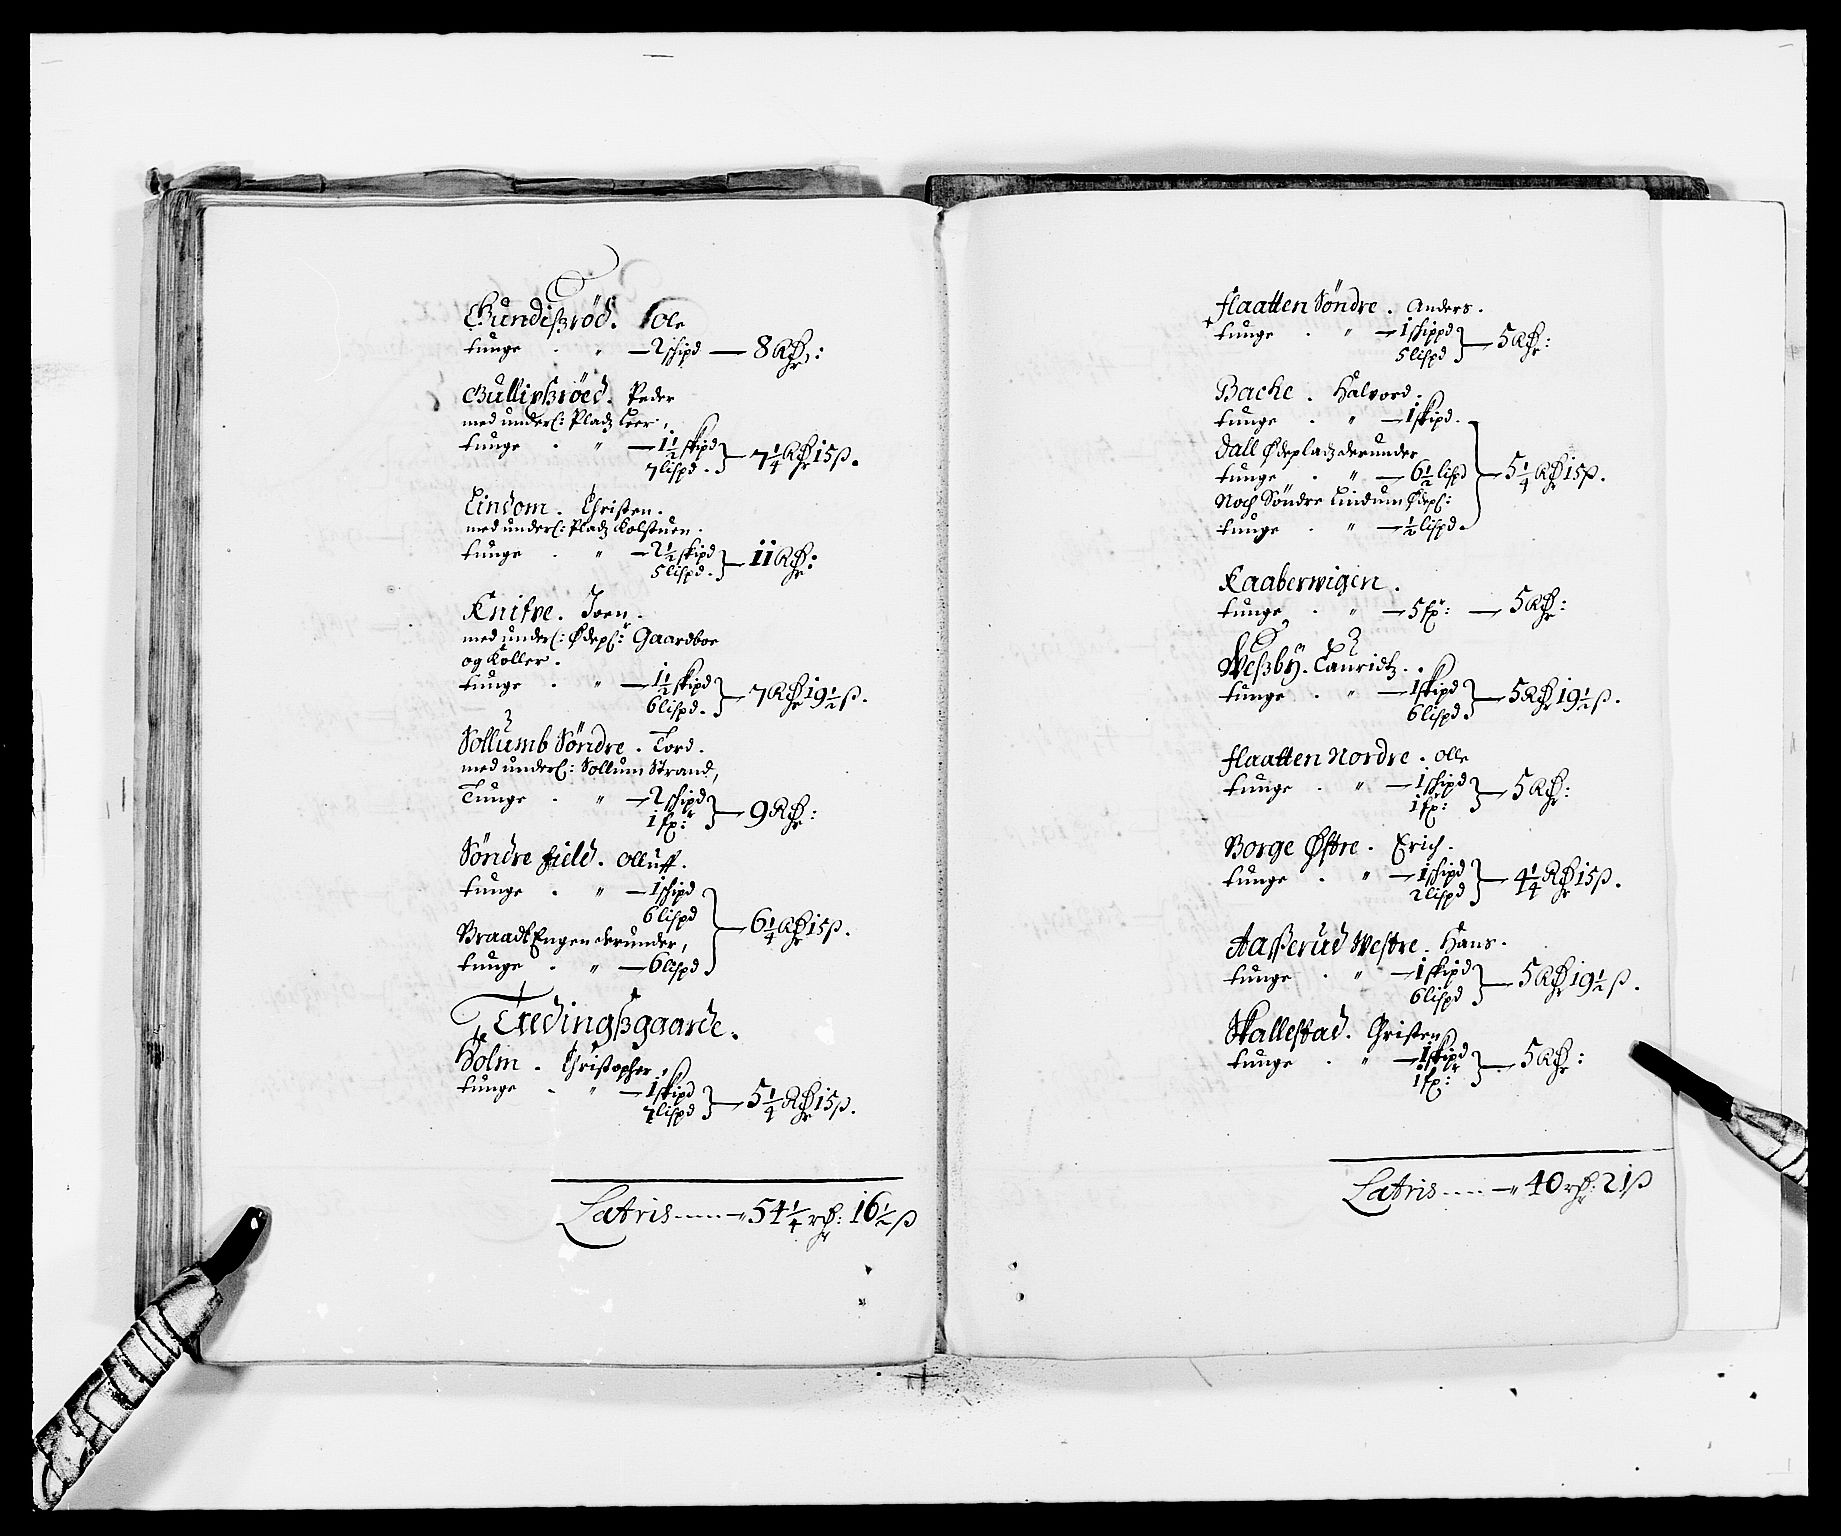 Gundisrød. Ole
tunge . " — 2 schipd — 8 Rdr:
Gullixrøed. Peder
med underl: Pladz Leer,
tunge . " — 1½ skipd
7 lispd. } — 7¼ Rdr 15 ß.
Lindom. Christen.
med underl: Pladz Kolstuen.
tunge . " — 2½ skipd
5 lispd. } — 11 Rdr:
Knifve. Joen.
med underl: Ødepl: Gaardboe
og Koller.
tunge . " — 1½ skipd
6 lispd. } — 7 Rdr 19½ ß.
Sollumb Søndre. Tord.
med underl: Sollum Strand,
Tunge . " — 2 schipd
1 fx: } — 9 Rdr:
Søndre field. Olluff.
tunge . " — 1 schipd
6 lispd
Braadt Engen derunder,
tunge . " — 6 lispd } — 6¼ Rdr 15 ß.
Tredingsgaarde.
Holm. Christopher.
tunge . " — 1 skipd
7 lispd } — 5¼ Rdr 15 ß.
Latris ..... — " 54¼ rdr: 16½ ß
Haatten Søndre. Anders.
tunge . " — 1 schippd
5 lispd } — 5 Rdr:
Bache. Halvord.
tunge . " — 1 skipd.
Dall Ødepladz derunder
tunge . " — 6½ lispd
Noch Søndre Lindum Ødepl:
tunge . " — ½ lispd. } — 5¼ Rdr 15 ß.
Kaaberwigen.
tunge . " — 5 fx: — 5 Rdr:
Wessby. Lauridtz.
tunge . " — 1 skipd
6 lispd. } — 5 Rdr 19½ ß.
Haatten Nordre. Olle
tunge . " — 1 schipd
1 fx: } — 5 Rdr:
Borge Østre. Erich.
tunge . " — 1 schipd
2 lispd } — 4¼ Rdr 15 ß.
Aasserud Westre. Hans.
tunge . " — 1 skipd
6 lispd } — 5 Rdr 19½ ß.
Skallestad. Christen
tunge . " — 1 skipd
1 fx: } — 5 Rdr:
Latris .... — " 40 rdr: 21 ß